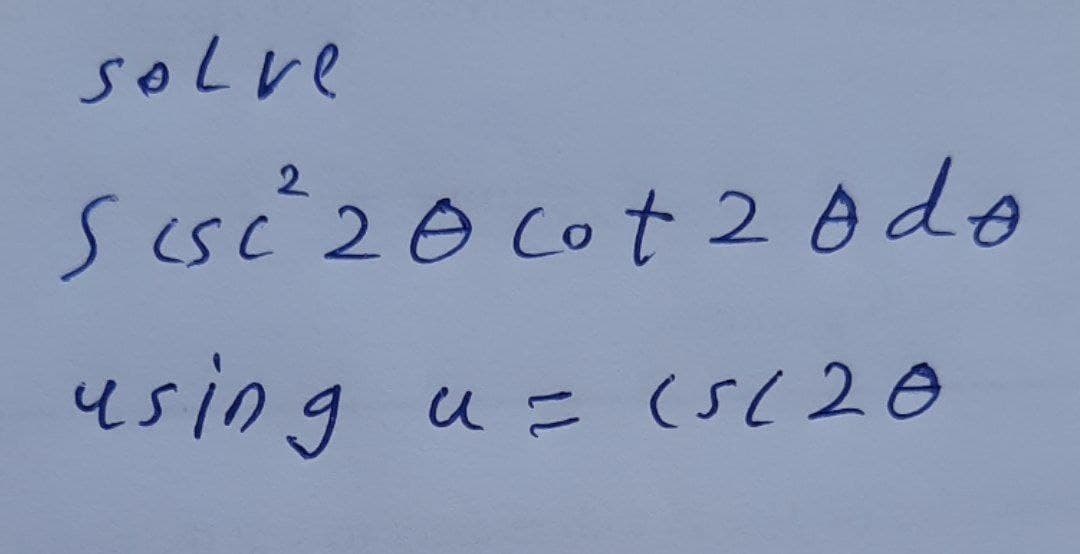 solve
∫ csc² 2θ cot 2θ dθ
using u = csc 2θ